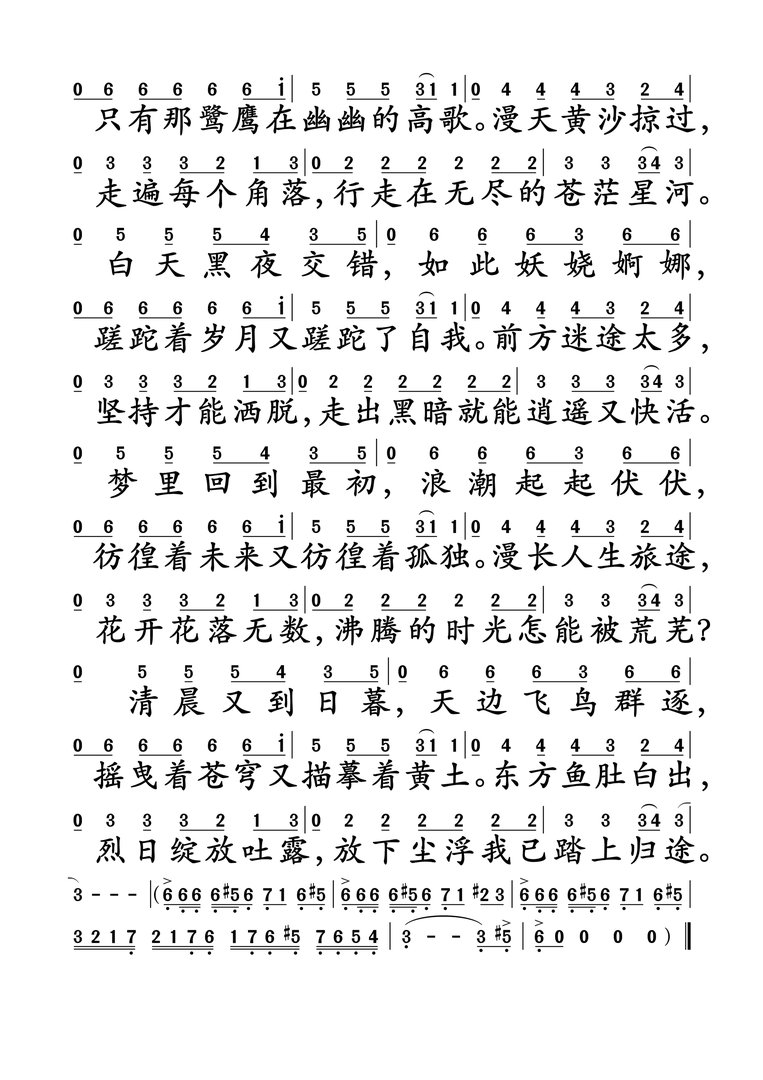 0 6 6 6 6 6 i | 5 5 5 31 1 | 0 4 4 4 3 2 4 |
只有那鹭鹰在幽幽的高歌。漫天黄沙掠过，
0 3 3 3 2 1 3 | 0 2 2 2 2 2 2 | 3 3 34 3 |
走遍每个角落，行走在无尽的苍茫星河。
0 5 5 5 4 3 5 | 0 6 6 6 3 6 6 |
白天黑夜交错，如此妖娆婀娜，
0 6 6 6 6 6 i | 5 5 5 31 1 | 0 4 4 4 3 2 4 |
蹉跎着岁月又蹉跎了自我。前方迷途太多，
0 3 3 3 2 1 3 | 0 2 2 2 2 2 2 | 3 3 3 34 3 |
坚持才能洒脱，走出黑暗就能逍遥又快活。
0 5 5 5 4 3 5 | 0 6 6 6 3 6 6 |
梦里回到最初，浪潮起起伏伏，
0 6 6 6 6 6 i | 5 5 5 31 1 | 0 4 4 4 3 2 4 |
彷徨着未来又彷徨着孤独。漫长人生旅途，
0 3 3 3 2 1 3 | 0 2 2 2 2 2 2 | 3 3 34 3 |
花开花落无数，沸腾的时光怎能被荒芜？
0 5 5 5 4 3 5 | 0 6 6 6 3 6 6 |
清晨又到日暮，天边飞鸟群逐，
0 6 6 6 6 6 i | 5 5 5 31 1 | 0 4 4 4 3 2 4 |
摇曳着苍穹又描摹着黄土。东方鱼肚白出，
0 3 3 3 2 1 3 | 0 2 2 2 2 2 2 | 3 3 34 3
烈日绽放吐露，放下尘浮我已踏上归途。
3 - - - | (6 6 6 6 #5 6 7 1 6 #5 | 6 6 6 6 #5 6 7 1 #2 3 | 6 6 6 6 #5 6 7 1 6 #5 |
3 2 1 7 2 1 7 6 1 7 6 #5 7 6 5 4 | 3 - - 3 #5 | 6 0 0 0 0 ) ‖